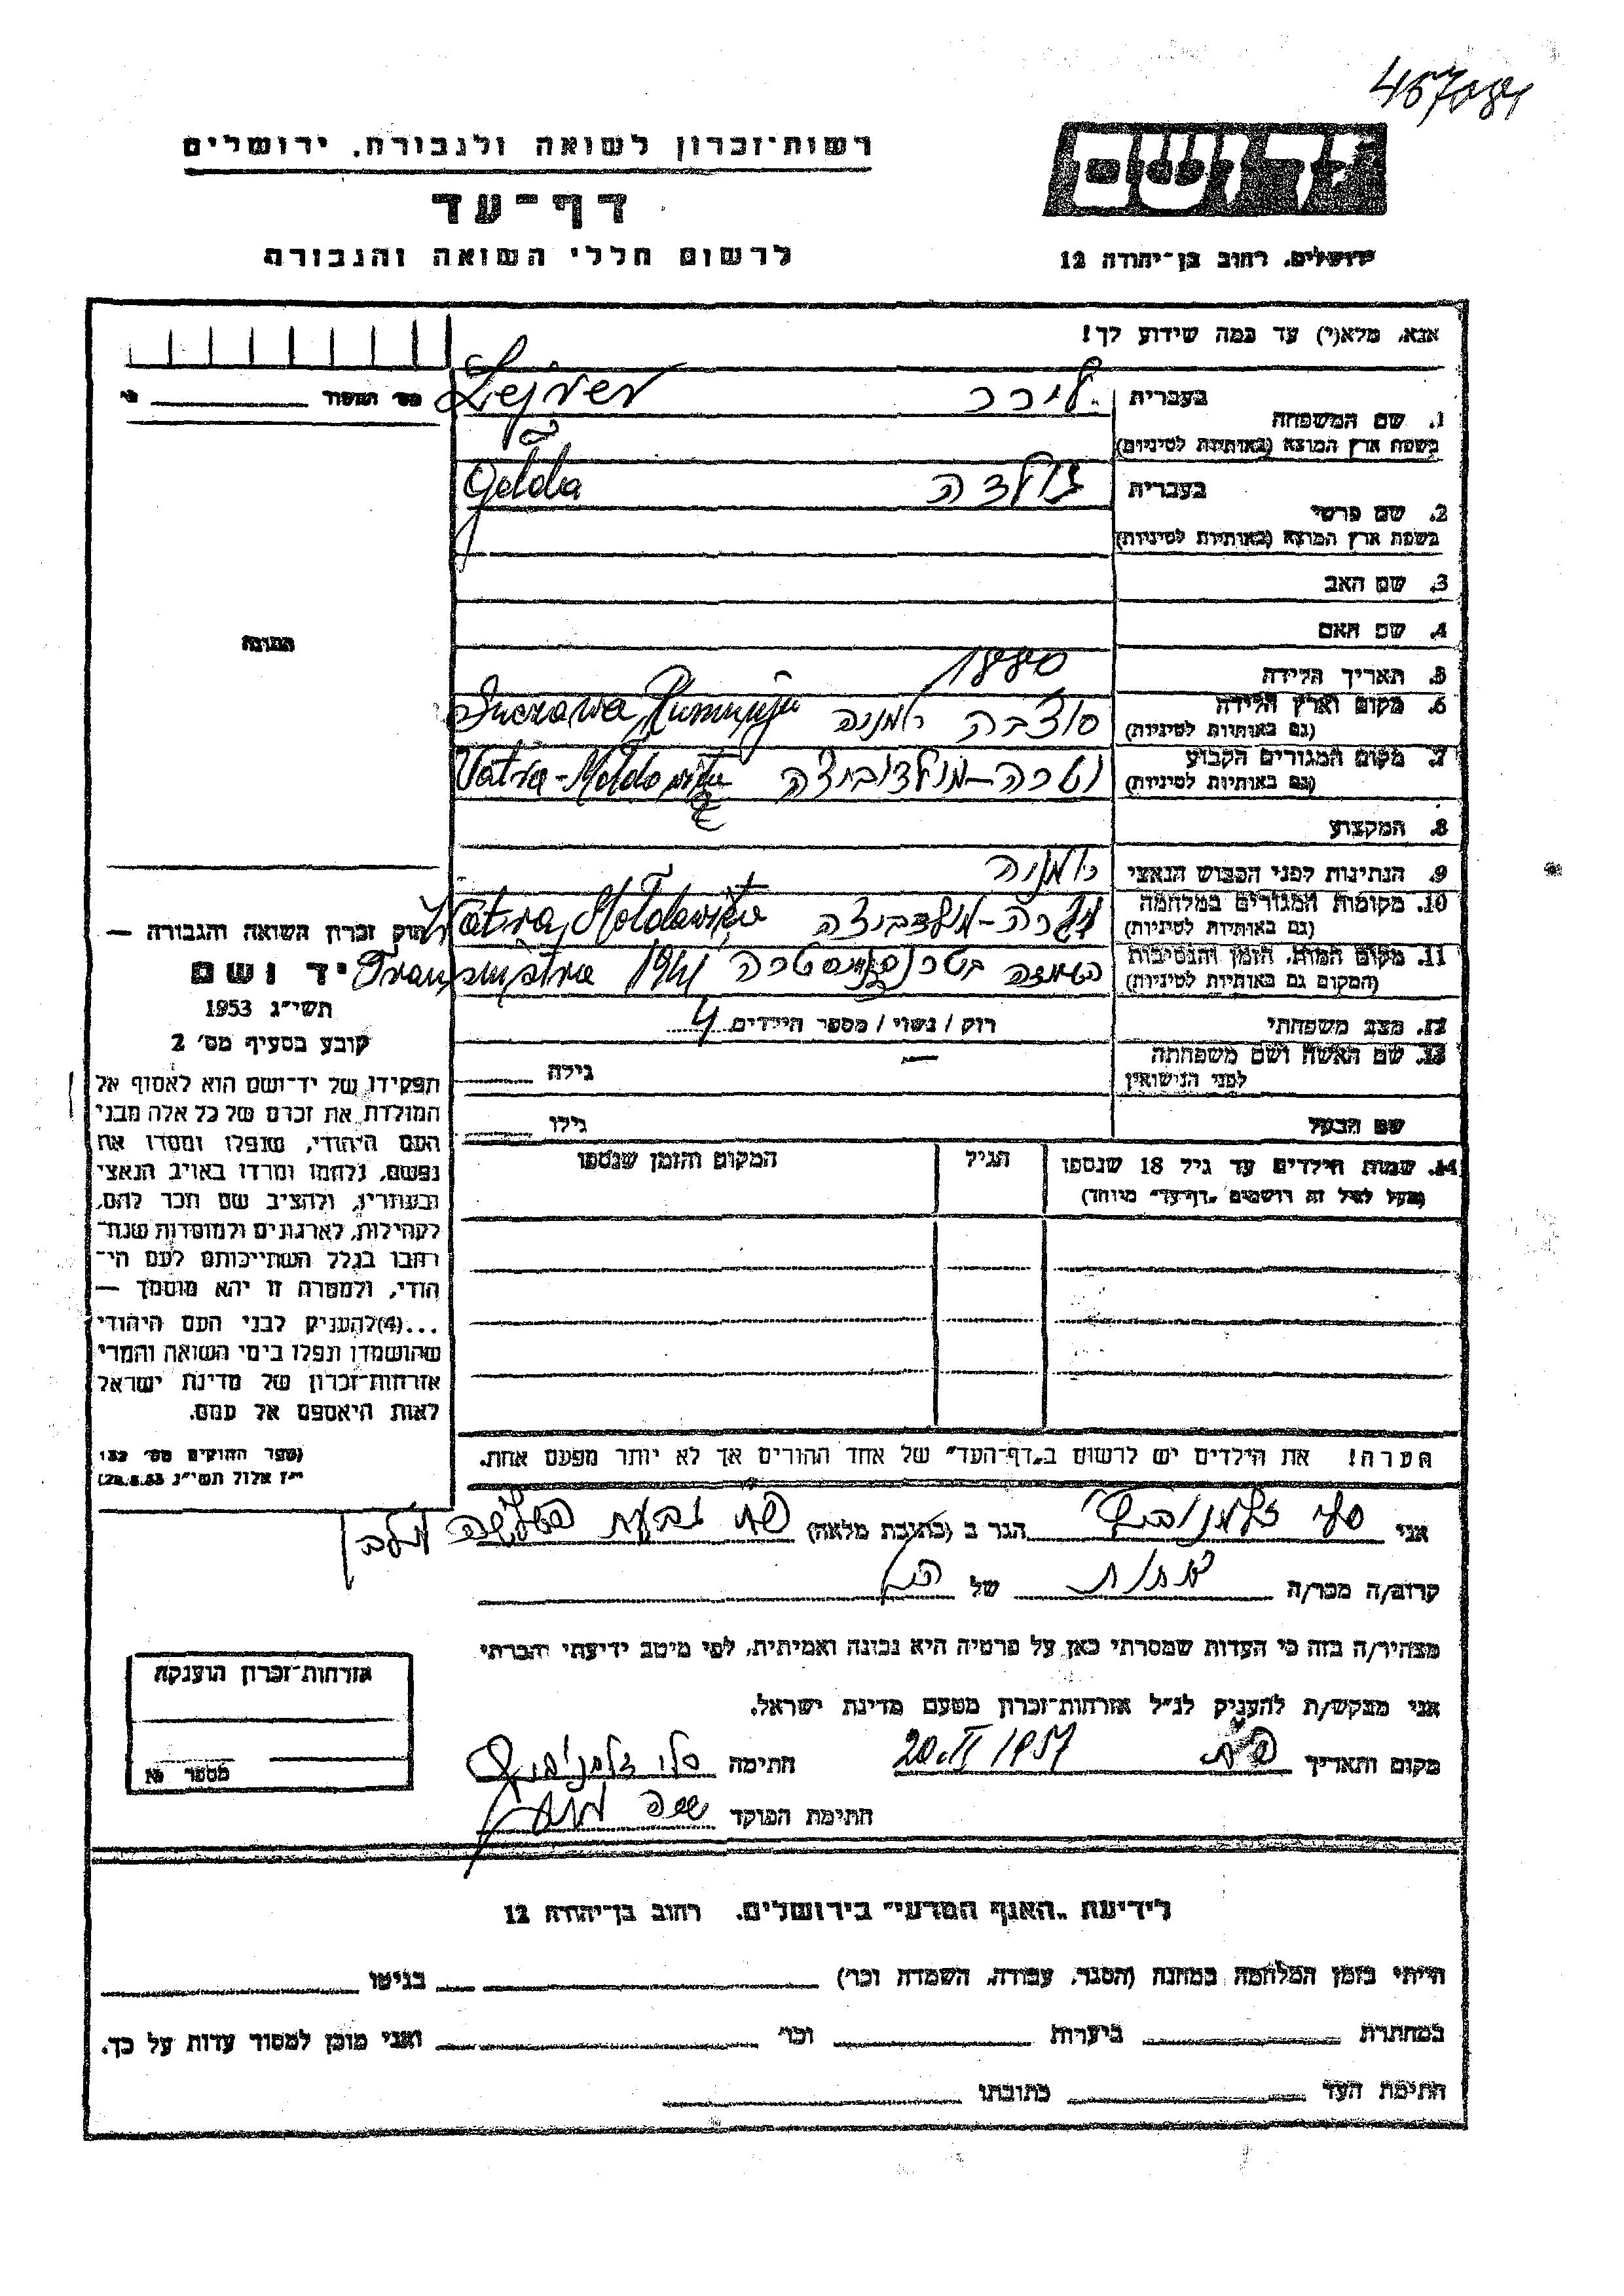 רשות־זכרון לשואה ולגבורה, ירושלים
דף־עד
לרשום חללי השואה והגבורה
יד ושם
ירושלים, רחוב בן־יהודה 12
אנא, מלא(י) עד כמה שידוע לך!
1. שם המשפחה
בעברית
Lejrer
בשפת ארץ המוצא (באותיות לטיניות)
2. שם פרטי
בעברית גולדה
Golda
בשפת ארץ המוצא (באותיות לטיניות)
3. שם האב
4. שם האם
5. תאריך הלידה 1880
6. מקום וארץ הלידה
(גם באותיות לטיניות)
רומניה
7. מקום המגורים הקבוע
(גם באותיות לטיניות)
וטרה-מולדוביצה Vatra-Moldowitza
8. המקצוע
9. הנתינות לפני הכבוש הנאצי רומניה
10. מקומות המגורים במלחמה
(גם באותיות לטיניות)
וטרה-מולדוביצה Vatra Moldawitza
11. מקום המות, הזמן והנסיבות
(המקום גם באותיות לטיניות)
1941
12. מצב משפחתי
רוק / נשוי / מספר הילדים 4
13. שם האשה ושם משפחתה
לפני הנישואין
— גילה
שם הבעל
גילו
14. שמות הילדים עד גיל 18 שנספו
(מעל לגיל זה רושמים "דף־עד" מיוחד)
הגיל
המקום והזמן שנספו
הערה! את הילדים יש לרשום ב"דף־העד" של אחד ההורים אך לא יותר מפעם אחת.
מס' המשפחה
התמונה
חוק זכרון השואה והגבורה —
יד ושם
תשי"ג 1953
קובע בסעיף מס' 2
תפקידו של יד־ושם הוא לאסוף אל
המולדת את זכרם של כל אלה מבני
העם היהודי, שנפלו ומסרו את
נפשם, נלחמו ומרדו באויב הנאצי
ובעוזריו, ולהציב שם וזכר להם,
לקהילות, לארגונים ולמוסדות שנח־
רבו בגלל השתייכותם לעם הי־
הודי, ולמטרה זו יהא מוסמך —
...(4) להעניק לבני העם היהודי
שהושמדו ונפלו בימי השואה והמרי
אזרחות־זכרון של מדינת ישראל
לאות היאספם אל עמם.
(ספר החוקים מס' 132
י"ז אלול תשי"ג 28.8.53)
אני
הגר ב (כתובת מלאה)
קרוב/ה מכר/ה
של
מצהיר/ה בזה כי העדות שמסרתי כאן על פרטיה היא נכונה ואמיתית, לפי מיטב ידיעתי והכרתי
אני מבקש/ת להעניק לנ"ל אזרחות־זכרון מטעם מדינת ישראל.
מקום ותאריך 20.II 1957
חתימה
חתימת הפוקד
אזרחות־זכרון הוענקה
מספר
לידיעת "האגף המדעי" בירושלים, רחוב בן־יהודה 12
הייתי בזמן המלחמה במחנה (הסגר, עבודה, השמדה וכו') בגיטו
במחתרת ביערות וכו' ואני מוכן למסור עדות על כך.
חתימת העד כתובתו